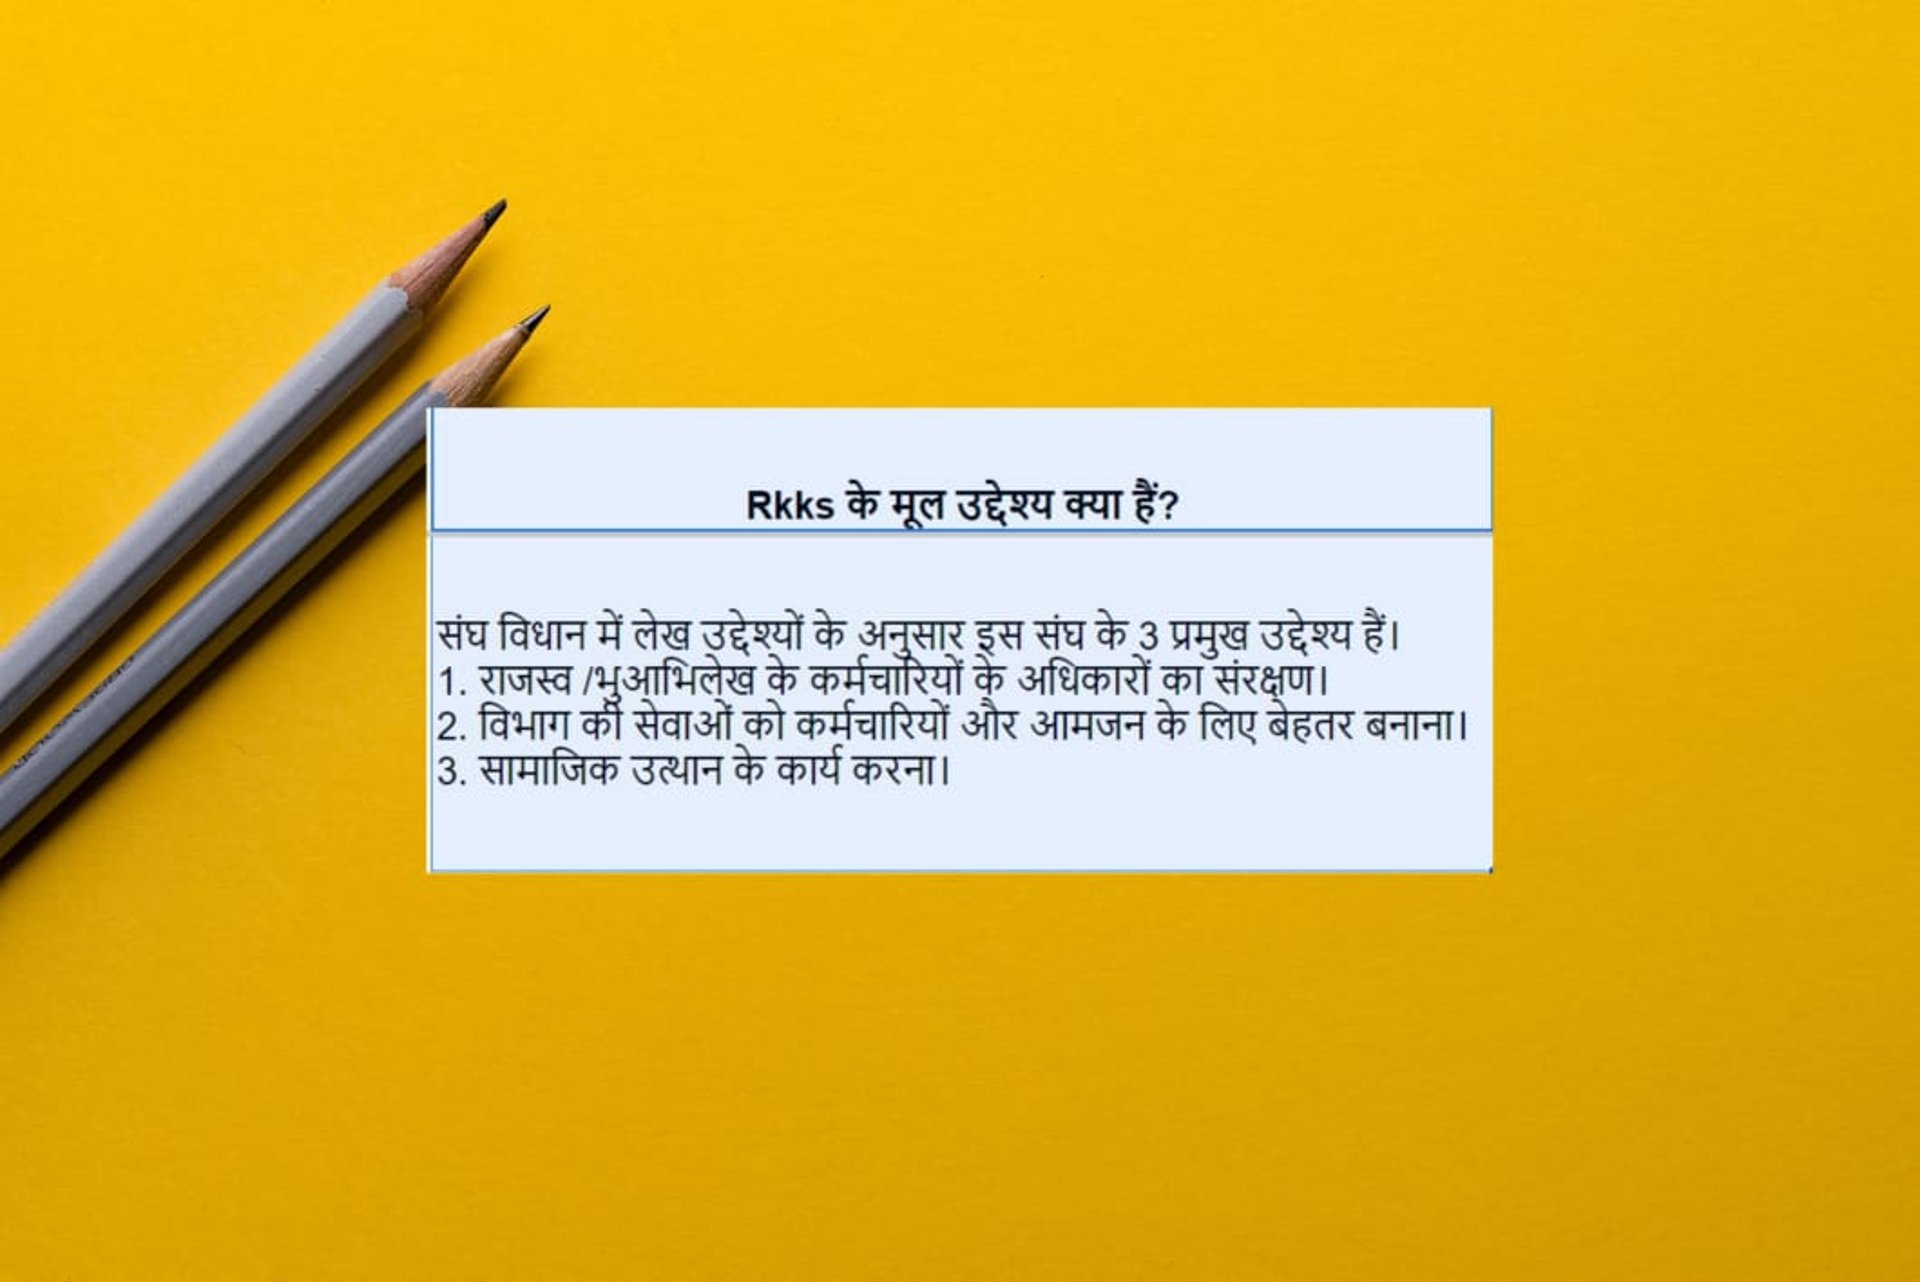 Rkks के मूल उद्देश्य क्या हैं?
संघ विधान में लेख उद्देश्यों के अनुसार इस संघ के 3 प्रमुख उद्देश्य हैं।
1. राजस्व /भुआभिलेख के कर्मचारियों के अधिकारों का संरक्षण।
2. विभाग की सेवाओं को कर्मचारियों और आमजन के लिए बेहतर बनाना।
3. सामाजिक उत्थान के कार्य करना।